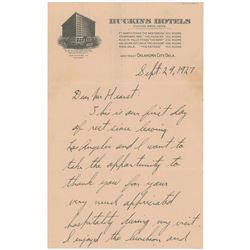 HUCKINS HOTELS
OKLAHOMA CITY, OKLA.
Sept 29, 1927
Dear Mr Hearst
This is our first day
of rest since leaving
Los Angeles and I want to
take the opportunity to
thank you for your
very much appreciated
hospitality during my visit
I enjoyed the luncheon and